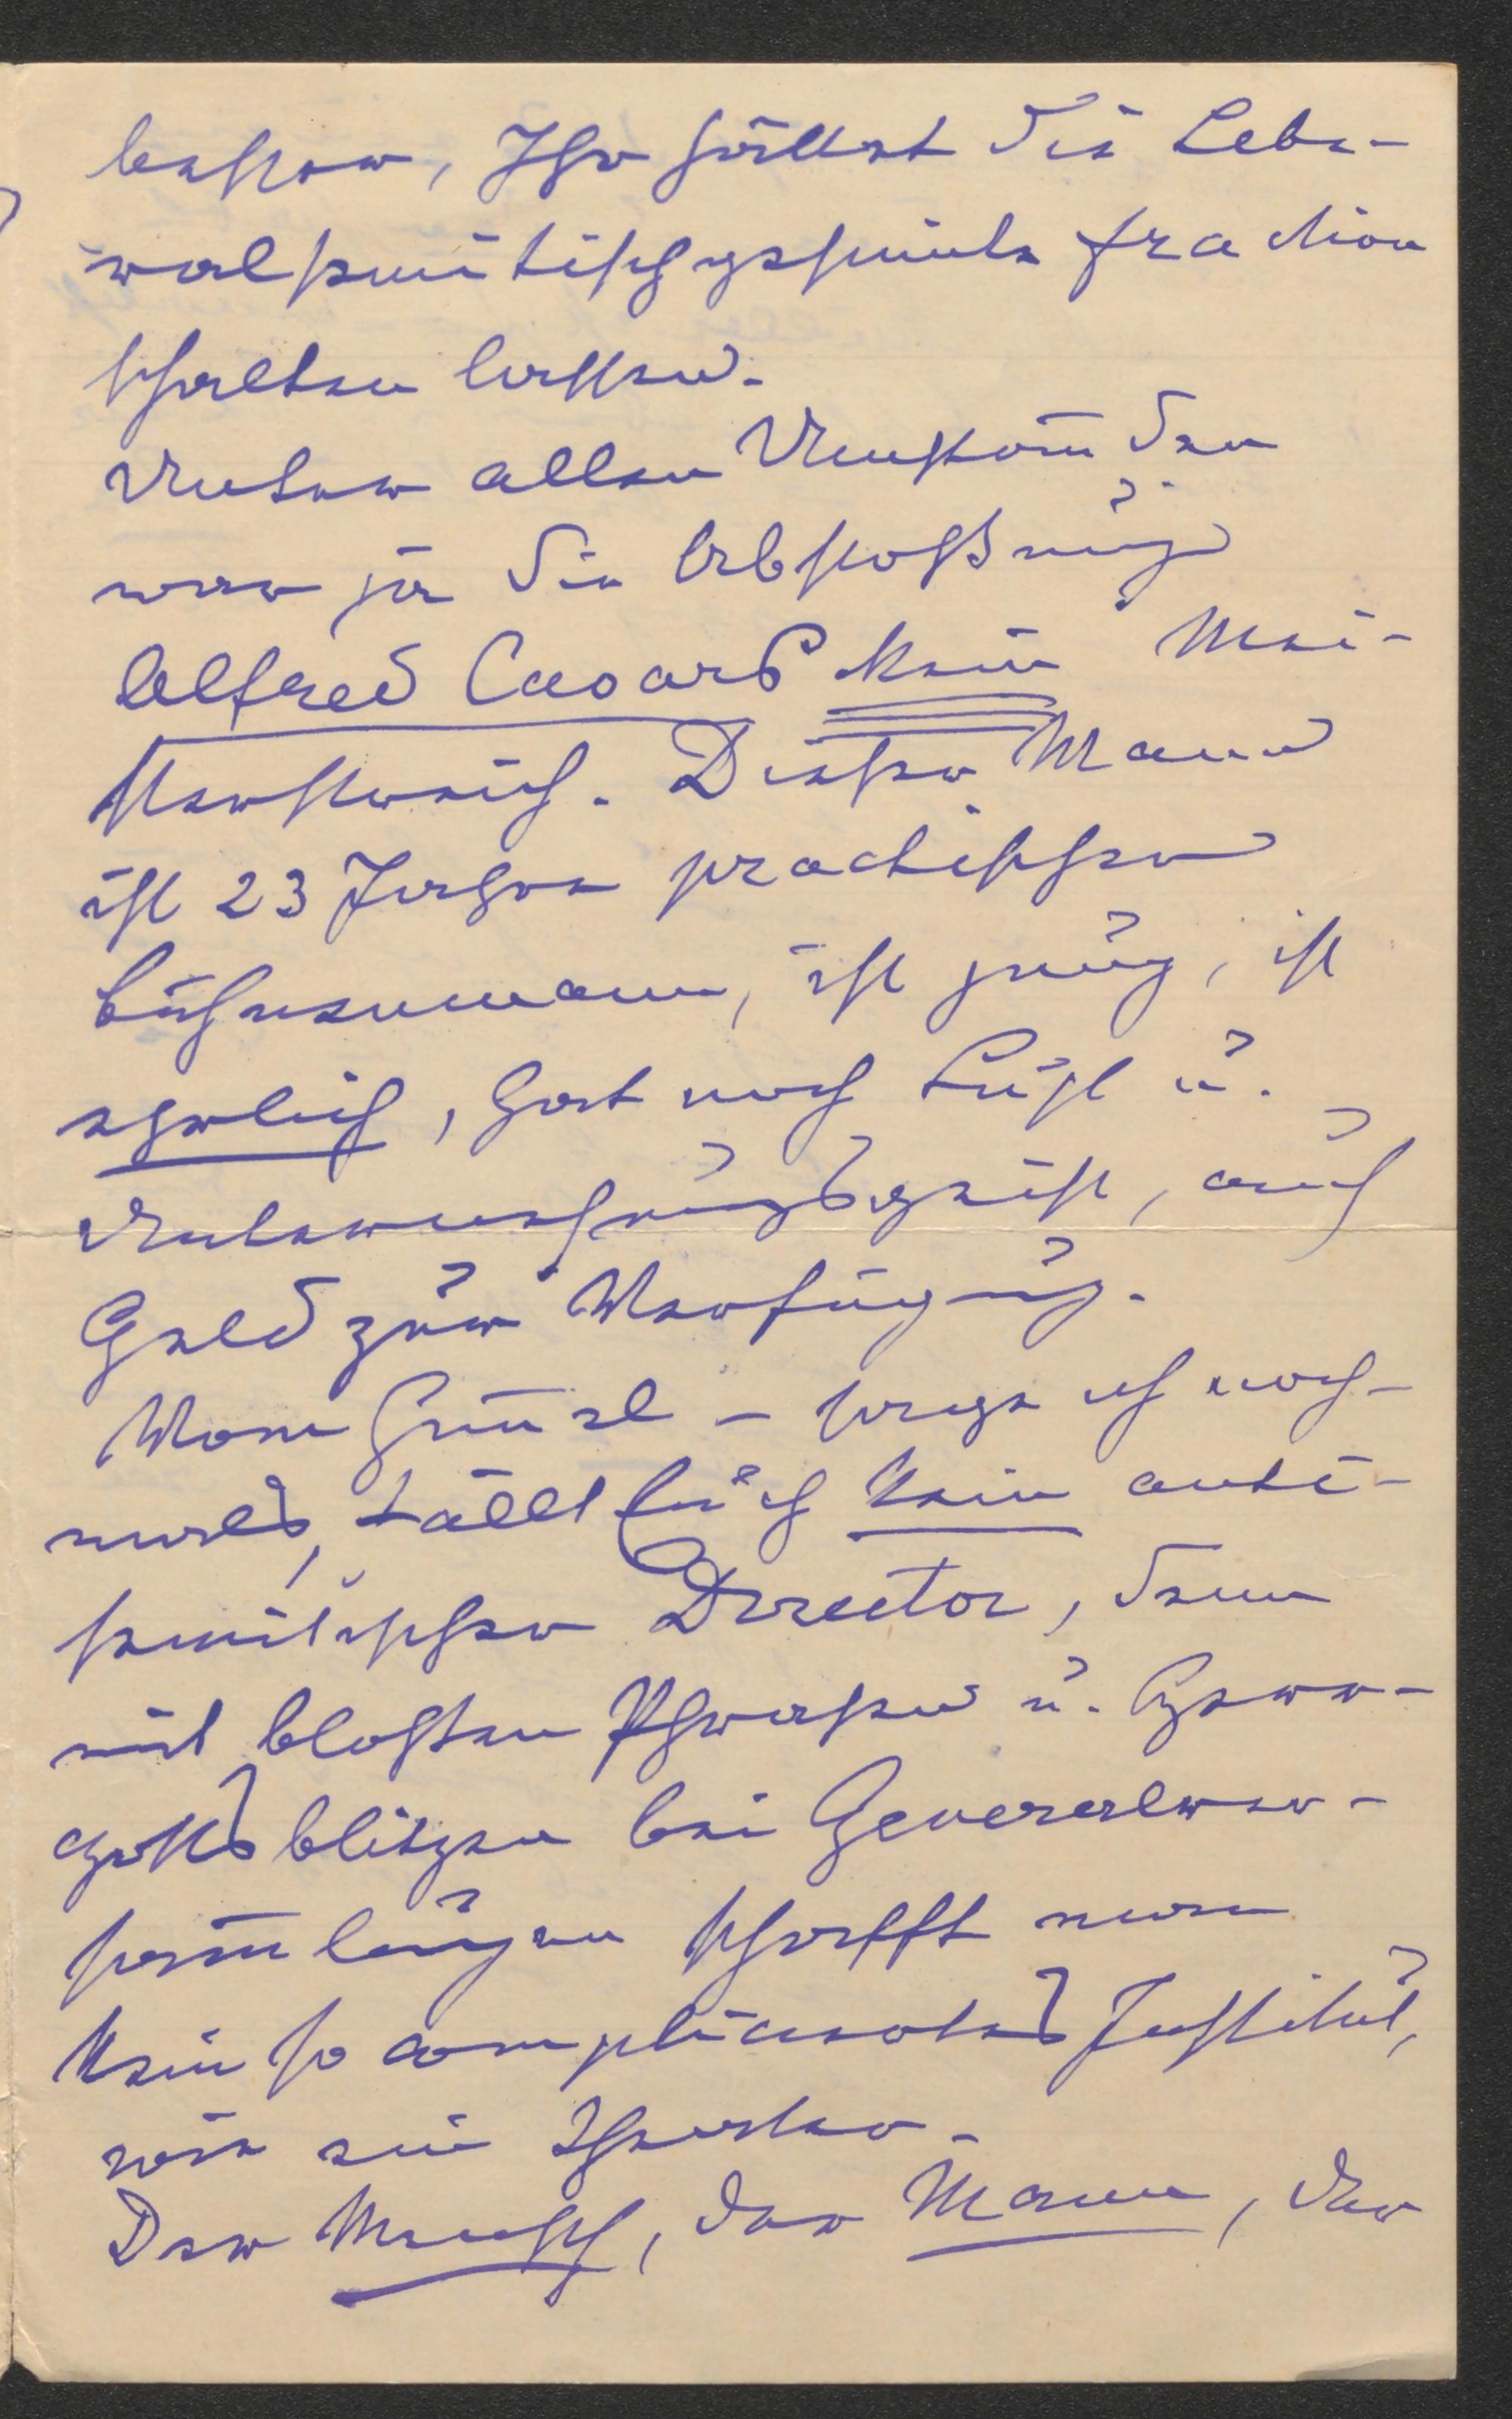 besser, Ihr hättet die Libe-
ralsemitischgesinnte Fraction
schalten lassen.
Unter allen Umständen
war ja die Abstoßung
Alfred Cavars kein Mei-
sterstreich. Dieser Mann
ist 23 Jahre practischer
Bühnenmann, ist jung, ist
ehrlich, hat noch Lust u.
Unternehmungsgeist, auch
Geld zur Verfügung.
Vom Himmel – sage ich noch-
mals, fällt Euch kein anti-
semitischer Director, denn
mit bloßen Phrasen u. Herr-
gottsblitzen bei Generalver-
sammlungen schafft man
kein so complicirtes Institut,
wie ein Theater.
Der Mensch, der Mann, der